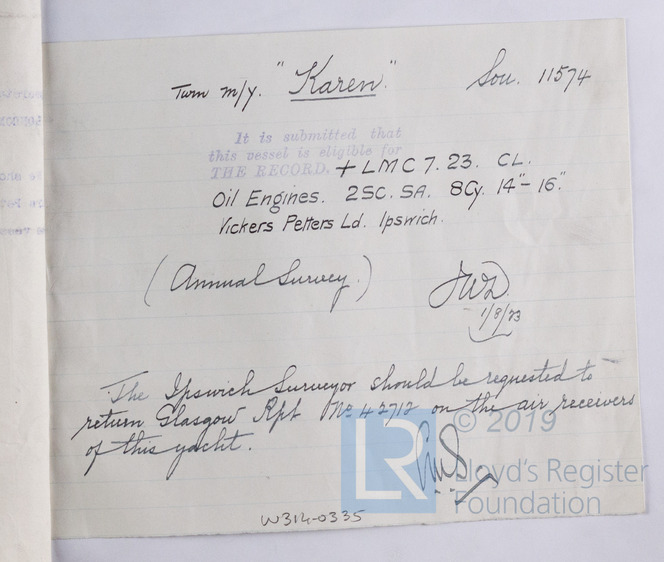 Twin m/y. "Karen" Sou. 11574
It is submitted that
this vessel is eligible for
THE RECORD. + LMC 7. 23. CL.
Oil Engines. 2SC. SA. 8Cy. 14" - 16"
Vickers Petters Ld. Ipswich.
(Annual Survey.)
1/8/23
The Ipswich Surveyor should be requested to
return Glasgow Rpt No 42712 on the air receivers
of this yacht.
© 2019
LR Lloyd's Register
Foundation
W314-0335